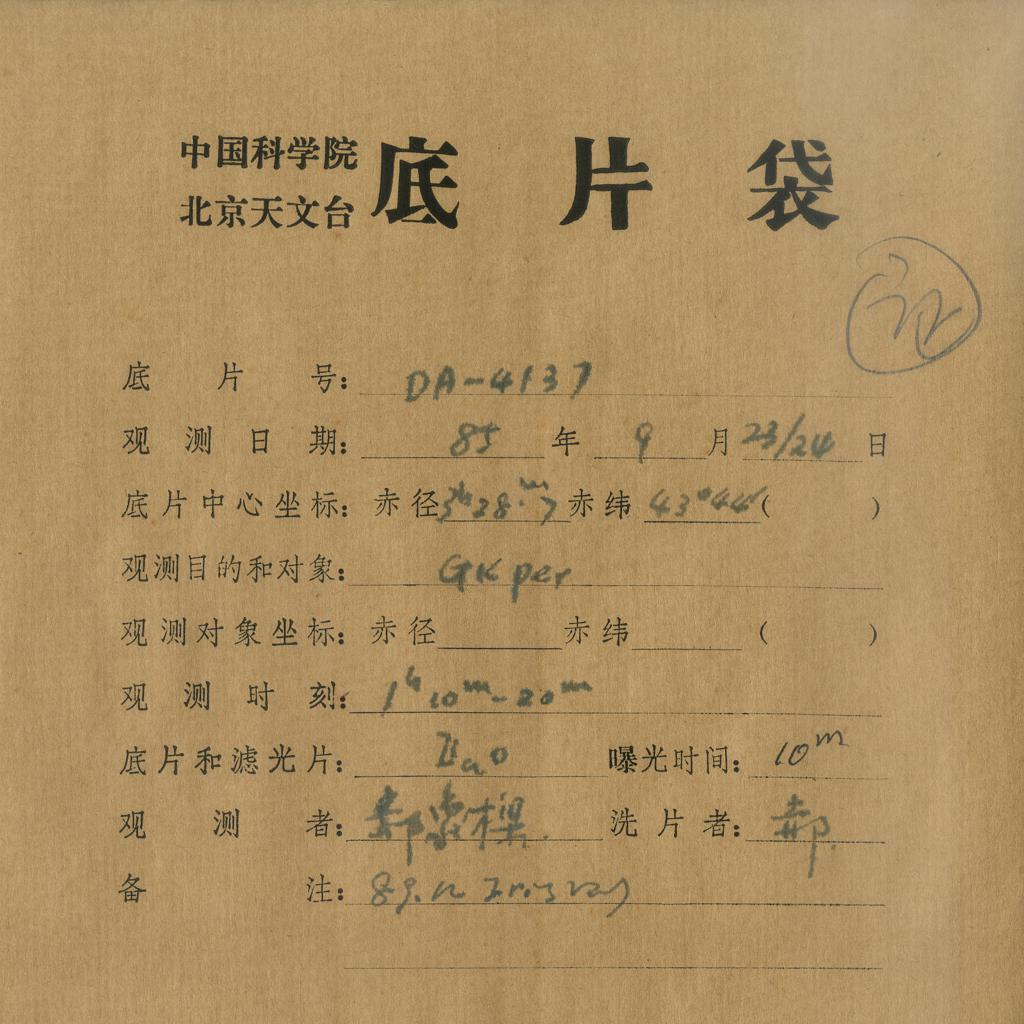 中国科学院
北京天文台
底片袋
底片号: DA-4137
观测日期: 85年9月23/24日
底片中心坐标: 赤径3h28m.7赤纬43°44′( )
观测目的和对象: GK per
观测对象坐标: 赤径 赤纬 ( )
观测时刻: 1h10m-20m
底片和滤光片: IIaO 曝光时间: 10m
观测者: 郝 洗片者: 郝
备注: